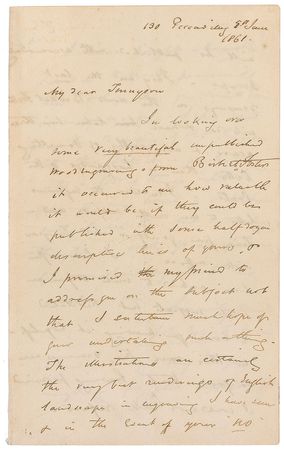 130 Piccadilly 5th June
1861.
My dear Tennyson
In looking over
some very beautiful unpublished
wood engravings from Birket Foster
it occurred to me how valuable
it would be if they could be
published with some half dozen
descriptive lines of yours, &
I promised my friend to
address you on the subject not
that I entertain much hope of
your undertaking such a thing.
The illustrations are certainly
the very best renderings of English
landscape in engraving I have seen
& in the event of yours no